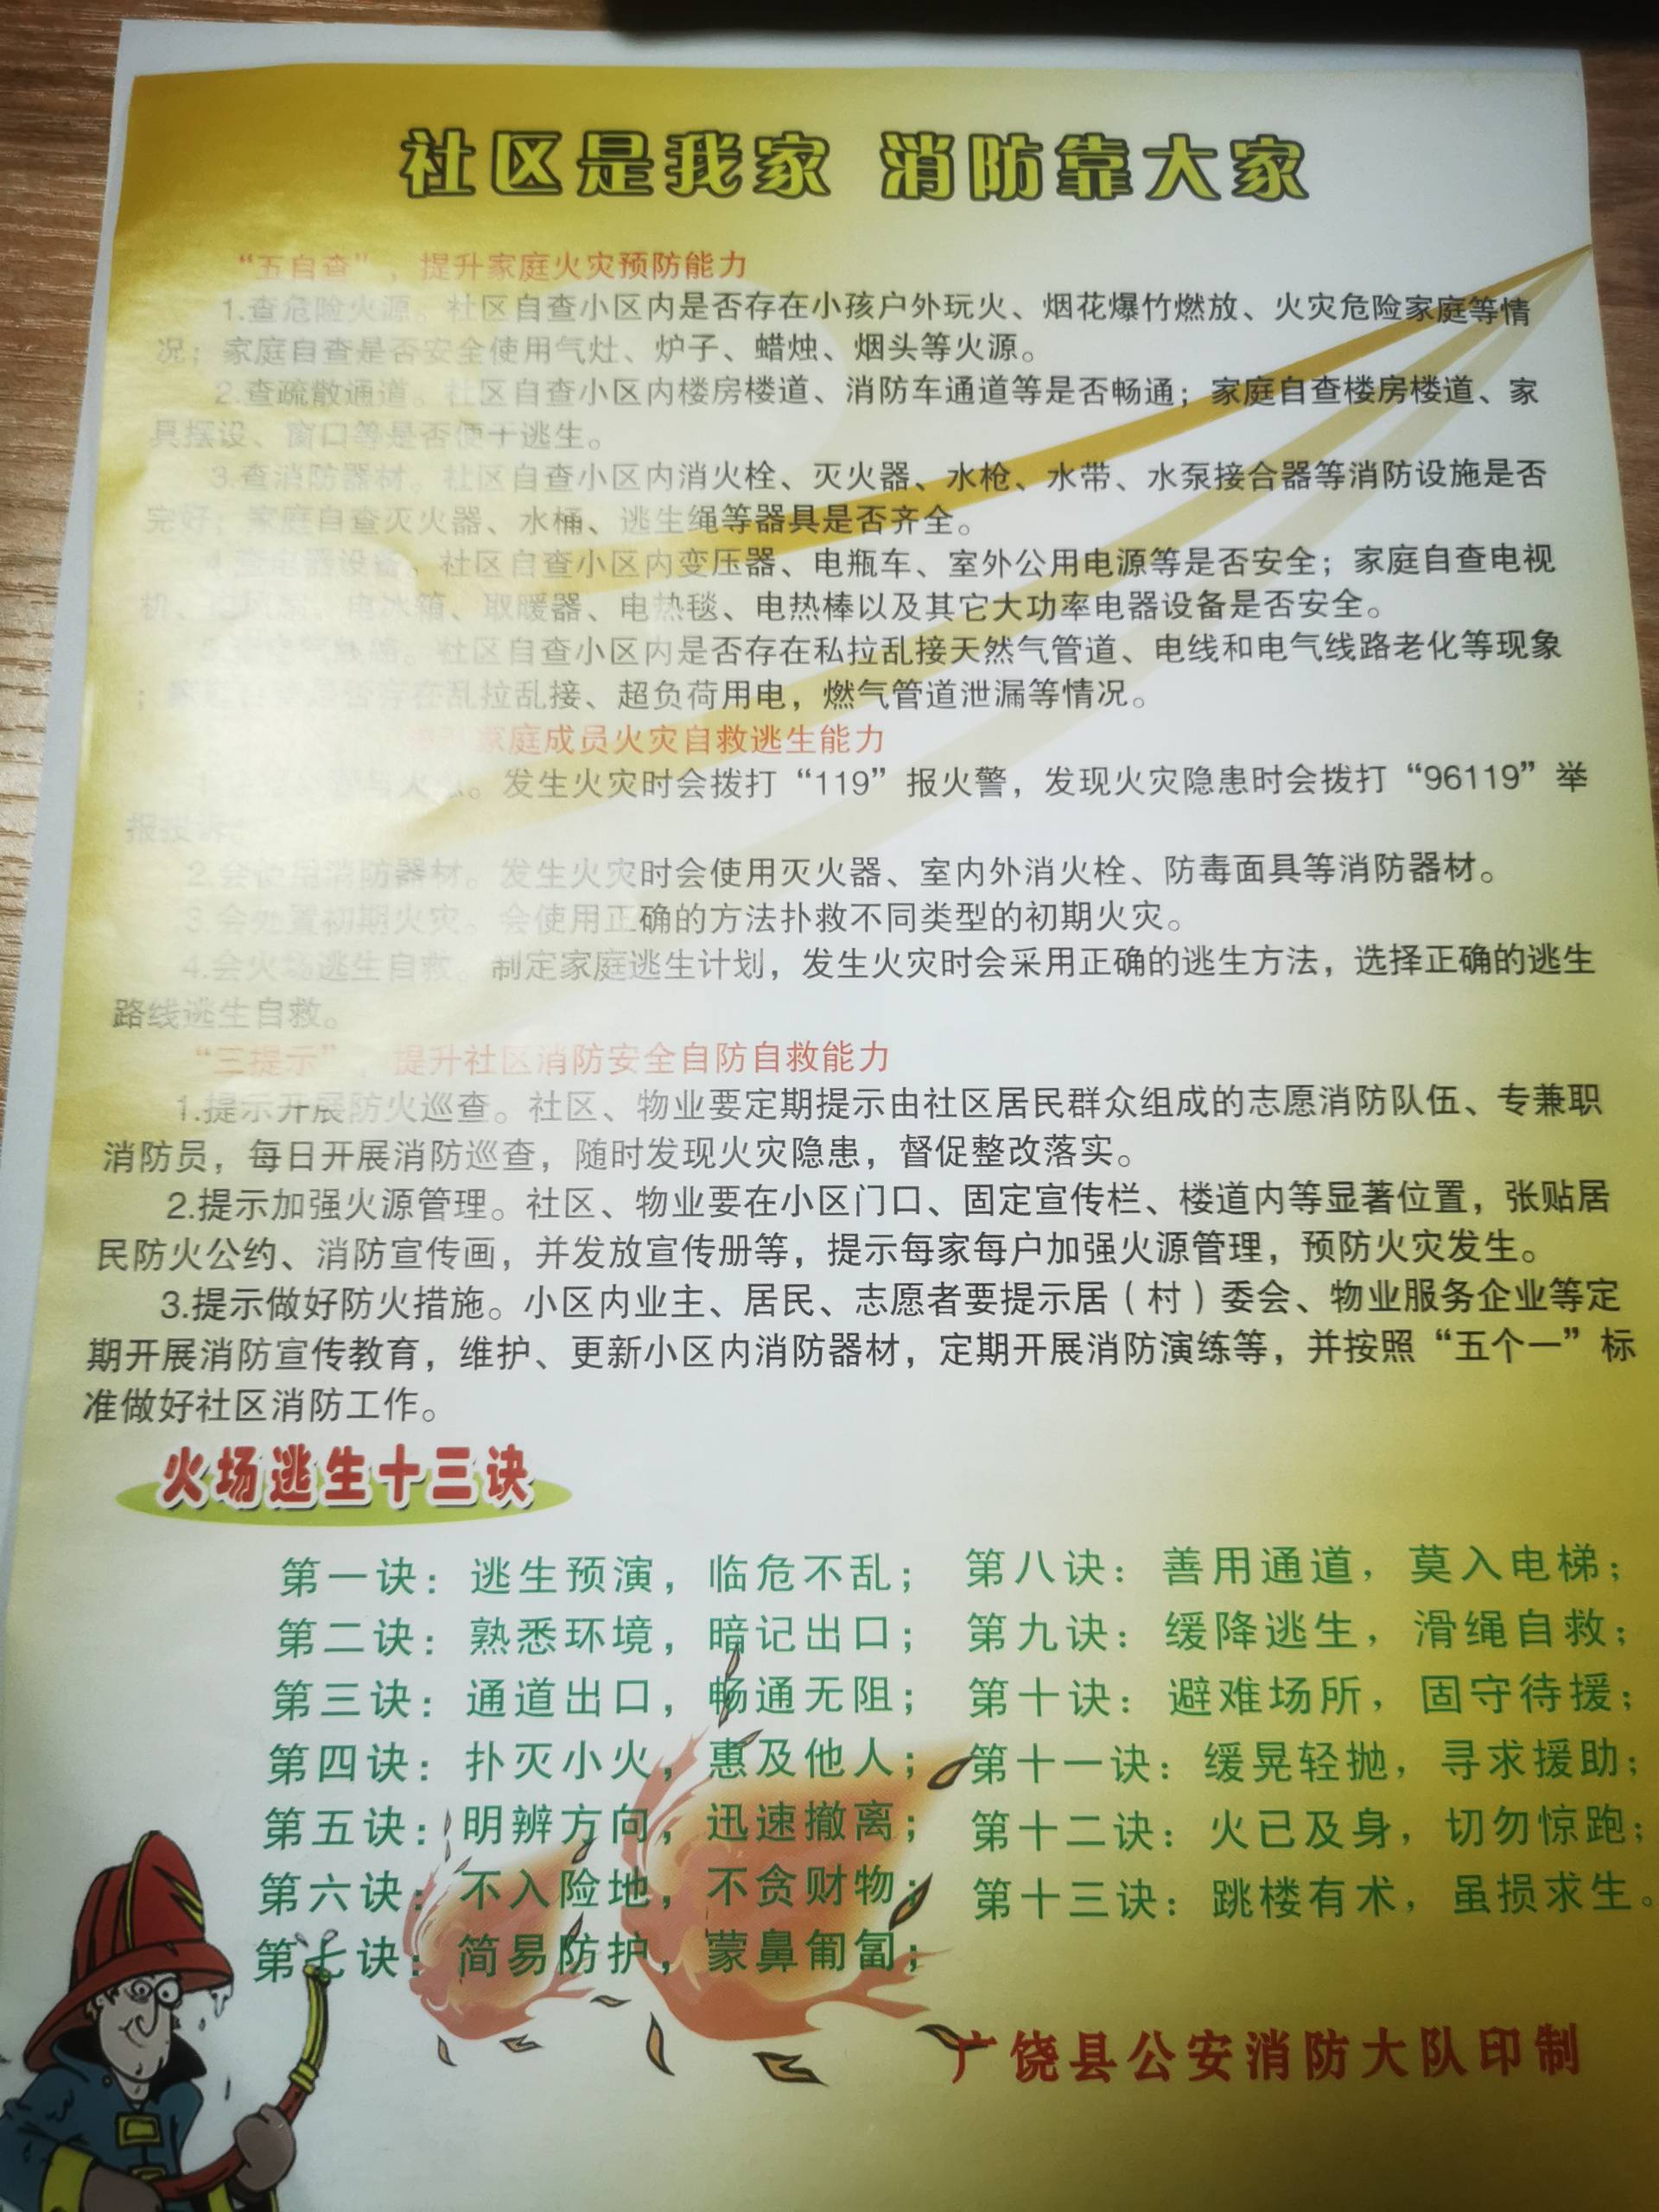 社区是我家 消防靠大家
“五自查”，提升家庭火灾预防能力
1.查危险火源。社区自查小区内是否存在小孩户外玩火、烟花爆竹燃放、火灾危险家庭等情
况；家庭自查是否安全使用气灶、炉子、蜡烛、烟头等火源。
2.查疏散通道。社区自查小区内楼房楼道、消防车通道等是否畅通；家庭自查楼房楼道、家
具摆设、窗口等是否便于逃生。
3.查消防器材。社区自查小区内消火栓、灭火器、水枪、水带、水泵接合器等消防设施是否
完好；家庭自查灭火器、水桶、逃生绳等器具是否齐全。
4.查电器设备。社区自查小区内变压器、电瓶车、室外公用电源等是否安全；家庭自查电视
机、电冰箱、取暖器、电热毯、电热棒以及其它大功率电器设备是否安全。
社区自查小区内是否存在私拉乱接天然气管道、电线和电气线路老化等现象
；是否存在乱拉乱接、超负荷用电，燃气管道泄漏等情况。
家庭成员火灾自救逃生能力
发生火灾时会拨打“119”报火警，发现火灾隐患时会拨打“96119”举
报投诉。
2.会使用消防器材。发生火灾时会使用灭火器、室内外消火栓、防毒面具等消防器材。
3.会处置初期火灾。会使用正确的方法扑救不同类型的初期火灾。
4.会火场逃生自救。制定家庭逃生计划，发生火灾时会采用正确的逃生方法，选择正确的逃生
路线逃生自救。
“三提示”，提升社区消防安全自防自救能力
1.提示开展防火巡查。社区、物业要定期提示由社区居民群众组成的志愿消防队伍、专兼职
消防员，每日开展消防巡查，随时发现火灾隐患，督促整改落实。
2.提示加强火源管理。社区、物业要在小区门口、固定宣传栏、楼道内等显著位置，张贴居
民防火公约、消防宣传画，并发放宣传册等，提示每家每户加强火源管理，预防火灾发生。
3.提示做好防火措施。小区内业主、居民、志愿者要提示居（村）委会、物业服务企业等定
期开展消防宣传教育，维护、更新小区内消防器材，定期开展消防演练等，并按照“五个一”标
准做好社区消防工作。
火场逃生十三诀
第一诀：逃生预演，临危不乱；
第二诀：熟悉环境，暗记出口；
第三诀：通道出口，畅通无阻；
第四诀：扑灭小火，惠及他人；
第五诀：明辨方向，迅速撤离；
第六诀：不入险地，不贪财物；
第七诀：简易防护，蒙鼻匍匐；
第八诀：善用通道，莫入电梯；
第九诀：缓降逃生，滑绳自救；
第十诀：避难场所，固守待援；
第十一诀：缓晃轻抛，寻求援助；
第十二诀：火已及身，切勿惊跑；
第十三诀：跳楼有术，虽损求生。
广饶县公安消防大队印制